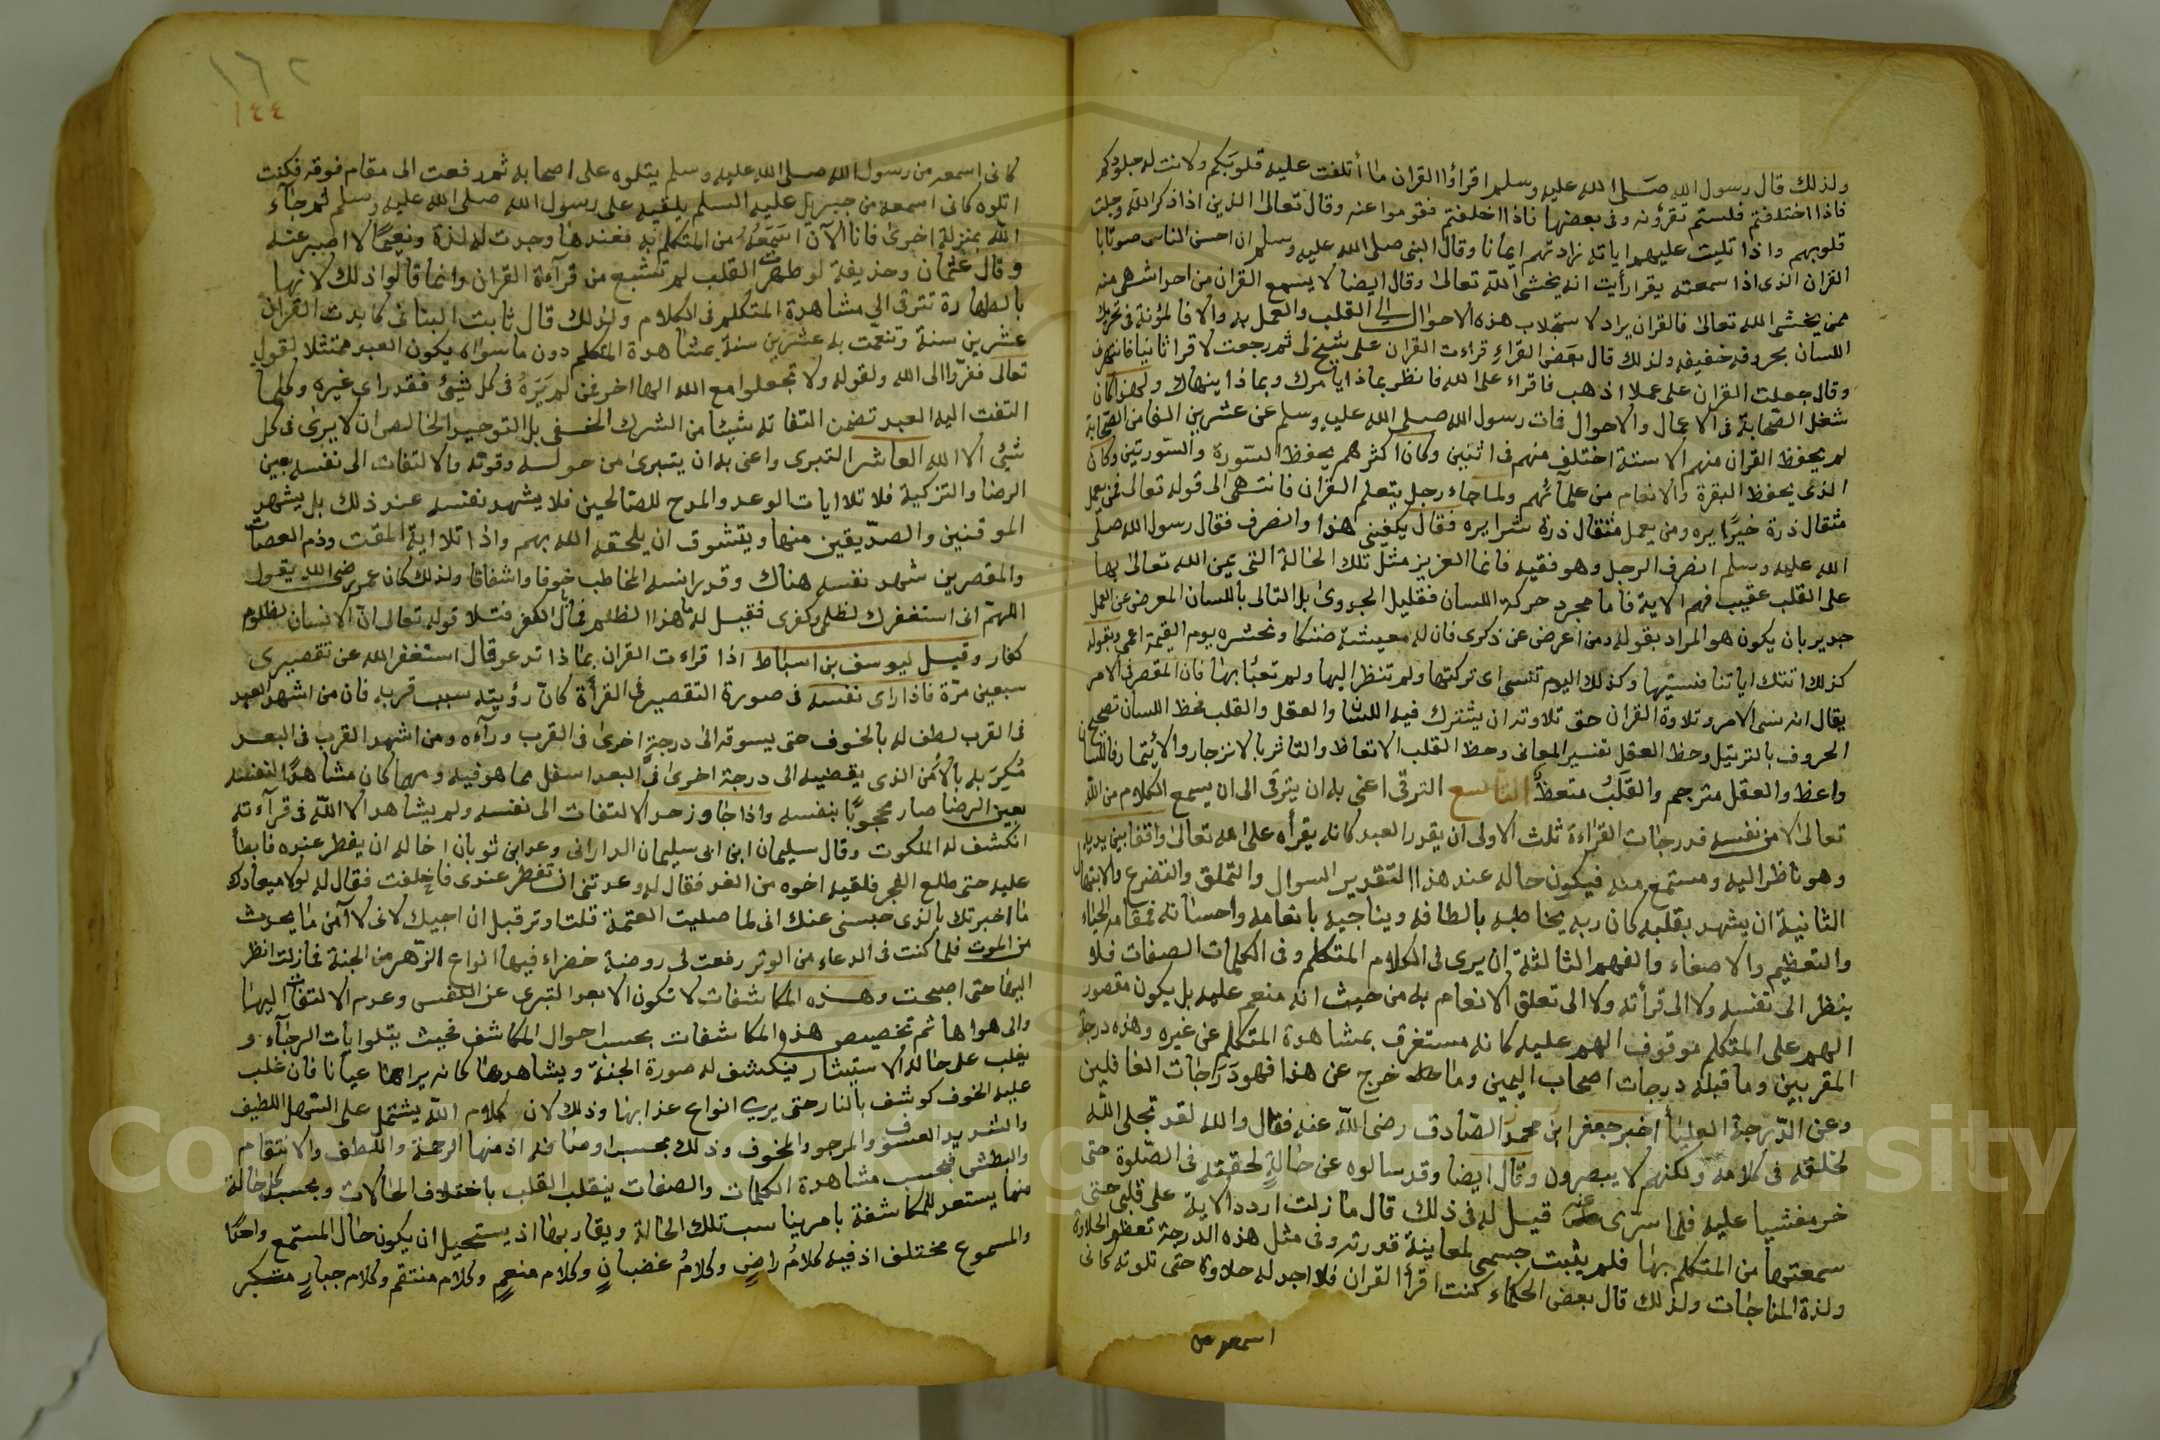 ولذلك قال رسول الله صلى الله عليه وسلم اقراؤا القران ما أتلفت عليه قلوبكم ولانت له جلودكم
فاذا اختلفتم فلستم تقرؤنه وفى بعضها فاذا اختلفتم فقوموا عنه وقال تعالى الذين اذا ذكر الله وجلت
قلوبهم واذا تليت عليهم اياته زادتهم ايمانا وقال النبى صلى الله عليه وسلم ان احسن الناس صوتا با
القران الذى اذا سمعته يقرا رأيت انه يخشى الله تعالى وقال ايضا لا يسمع القران من احد اشهى منه
ممن يخشى الله تعالى فالقران يراد لاستجلاب هذه الاحوال الى القلب والعمل به والا فالمؤنة فى تحريك
اللسان بحروفه خفيفه ولذلك قال بعض القراء قراءت القران على شيخ لى ثم رجعت لاقرا ثانيا فانتهرنى
وقال جعلت القران على عملا اذهب فاقراء على الله فانظر بماذا يامرك وبماذا ينهاك ولهذا كان
شغل الصحابة فى الاعمال والاحوال فات رسول الله صلى الله عليه وسلم عن عشرين الفا من الصحابة
لم يحفظ القران منهم الا ستة اختلف منهم فى اثنين وكان اكثرهم يحفظ السورة والسورتين وكان
الذى يحفظ البقرة والانعام من علمائهم ولما جاء رجل يتعلم القران فانتهى الى قوله تعالى فمن يعمل
مثقال ذرة خيرا يره ومن يعمل مثقال ذرة شرا يره فقال يكفينى هذا وانصرف فقال رسول الله صلى
الله عليه وسلم انصرف الرجل وهو فقيه فانما العزيز مثل تلك الحالة التى يمن الله تعالى بها
على القلب عقيب فهم الاية فاما مجرد حركة اللسان فقليل الجدوى بل التالى باللسان المعرض عن العمل
جدير بان يكون هو المراد بقوله ومن اعرض عن ذكرى فان له معيشة ضنكا ونحشره يوم القيمة اعمى وبقوله
كذلك اتتك اياتنا فنسيتها وكذلك اليوم تنسى اى تركتها ولم تنظر اليها ولم تعبأ بها فان المقصر فى الامر
يقال انه نسى الامر وتلاوة القران حق تلاوته ان يشترك فيه اللسان والعقل والقلب فحظ اللسان تصحيح
الحروف بالترتيل وحظ العقل تفسير المعانى وحظ القلب الاتعاظ والتاثر بالانزجار والائتمار فاللسان
واعظ والعقل مترجم والقلب متعظ التاسع الترقى اعنى به ان يترقى الى ان يسمع الكلام من الله
تعالى لا من نفسه فدرجات القراءة ثلث الاولى ان يقدر العبد كانه يقرأه على الله تعالى واقفا بين يديه
وهو ناظر اليه ومستمع منه فيكون حاله عند هذا التقدير السوال والتملق والتضرع والابتهال
الثانية ان يشهد بقلبه كان ربه يخاطبه بالطافه ويناجيه بانعامه واحسانه فمقامه الحياء
والتعظيم والاصغاء والفهم الثالثة ان يرى فى الكلام المتكلم وفى الكلمات الصفات فلا
ينظر الى نفسه ولا الى قرأته ولا الى تعلق الانعام به من حيث انه منعم عليه بل يكون مقصور
الهم على المتكلم موقوف الهم عليه كانه مستغرق بمشاهدة المتكلم عن غيره وهذه درجة
المقربين وما قبله درجات اصحاب اليمين وما خرج عن هذا فهو درجات الغافلين
وعن الدرجة العليا أخبر جعفر ابن محمد الصادق رضى الله عنه فقال والله لقد تجلى الله
لخلقه فى كلامه ولكنهم لا يبصرون وقال ايضا وقد سالوه عن حالة لحقته فى الصلوة حتى
خر مغشيا عليه فلما سرى عنه قيل له فى ذلك قال ما زلت اردد الاية على قلبى حتى
سمعتها من المتكلم بها فلم يثبت جسمى لمعاينة قدرته وفى مثل هذه الدرجة تعظم الحلاوة
ولذة المناجات ولذلك قال بعض الحكماء كنت اقرأ القران فلا اجد له حلاوة حتى تلوته كانى
اسمعه من
١٦٢
١٤٤
كانى اسمعه من رسول الله صلى الله عليه وسلم يتلوه على اصحابه ثم رفعت الى مقام فوقه فكنت
اتلوه كانى اسمعه من جبريل عليه السلم يلقيه على رسول الله صلى الله عليه وسلم ثم جاء
الله بمنزلة اخرى فانا الآن اسمعه من المتكلم به فعندها وجدت له لذة ونعيما لا اصبر عنه
وقال عثمان وحذيفة لو طهرت القلب لم تشبع من قرآءة القران وانما قالوا ذلك لانها
بالطهارة تترقى الى مشاهدة المتكلم فى الكلام ولذلك قال ثابت البنانى كابدت القران
عشرين سنة وتنعمت به عشرين سنة بمشاهدة المتكلم دون ما سواه يكون العبد ممتثلا لقوله
تعالى ففروا الى الله ولقوله ولا تجعلوا مع الله الها اخر فمن لم يره فى كل شئ فقد راى غيره وكلما
التفت اليه العبد تضمن التفاته شيئا من الشرك الخفى بل التوحيد الخالص ان لا يرى فى كل
شئ الا الله العاشر التبرى واعنى به ان يتبرى من حوله وقوته والالتفات الى نفسه بعين
الرضا والتزكية فلا تلا ايات الوعد والمدح للصالحين فلا يشهد نفسه عند ذلك بل يشهد
الموقنين والصديقين منها ويتشوق ان يلحقه الله بهم واذا تلا اية المقت وذم العصات
والمقصرين شهد نفسه هناك وقدر انه المخاطب خوفا واشفاقا ولذلك كان عمر رضى الله يقول
اللهم انى استغفرك لظلمى وكفرى فقيل له هذا الظلم فما بال الكفر فتلا قوله تعالى ان الانسان لظلوم
كفار وقيل ليوسف بن اسباط اذا قراءت القران بماذا تدعو قال استغفر الله عن تقصيرى
سبعين مرة فاذا راى نفسه فى صورة التقصير فى القرأة كان رؤيته سبب قربه فان من اشهد العبد
فى القرب لطف له بالخوف حتى يسوقه الى درجة اخرى فى القرب ورآءه ومن اشهد القرب فى البعد
مكر به بالامن الذى يقضيه الى درجة اخرى فى البعد اسفل مما هو فيه ومهما كان مشاهدا لنفسه
بعين الرضا صار محجوبا بنفسه واذا جاوز حد الالتفات الى نفسه ولم يشاهد الا الله فى قرآءته
انكشف له الملكوت وقال سليمان ابن ابى سليمان الدارانى وعد ابن ثوبان اخا له ان يفطر عنده فابطأ
عليه حتى طلع الفجر فلقيه اخوه من الغد فقال له وعدتنى ان تفطر عندى فاخلفت فقال له لولا ميعادك
ما اخبرتك بالذى حبسنى عنك انى لما صليت العتمة قلت اوتر قبل ان اجيبك لانى لا آمن ما يحدث
من الموت فلما كنت فى الدعاء من الوتر رفعت لى روضة خضراء فيها انواع الزهر من الجنة فما زلت انظر
اليها حتى اصبحت وهذه المكاشفات لا تكون الا بعد التبرى عن النفس وعدم الالتفات اليها
والى هواها ثم تخصيص هذه المكاشفات بحسب احوال المكاشف فحيث يتلوا يات الرجآء و
يغلب على حاله الاستبشار ينكشف له صورة الجنة ويشاهدها كانه يراها عيانا فان غلب
عليه الخوف كوشف بالنار حتى يرى انواع عذابها وذلك لان كلام الله يشتمل على السهل اللطيف
والشديد العسوف والمرجو والمخوف وذلك بحسب اوصافه اذ منها الرحمة واللطف والانتقام
والبطش فبحسب مشاهدة الكلمات والصفات ينقلب القلب باختلاف الحالات وبحسب كل حالة
منها يستعد للمكاشفة بامر يناسب تلك الحالة ويقاربها اذ يستحيل ان يكون حال المستمع واحدا
والمسموع مختلف اذ فيه كلام راض وكلام غضبان وكلام منعم وكلام منتقم وكلام جبار متكبر
Copyright © King Saud University